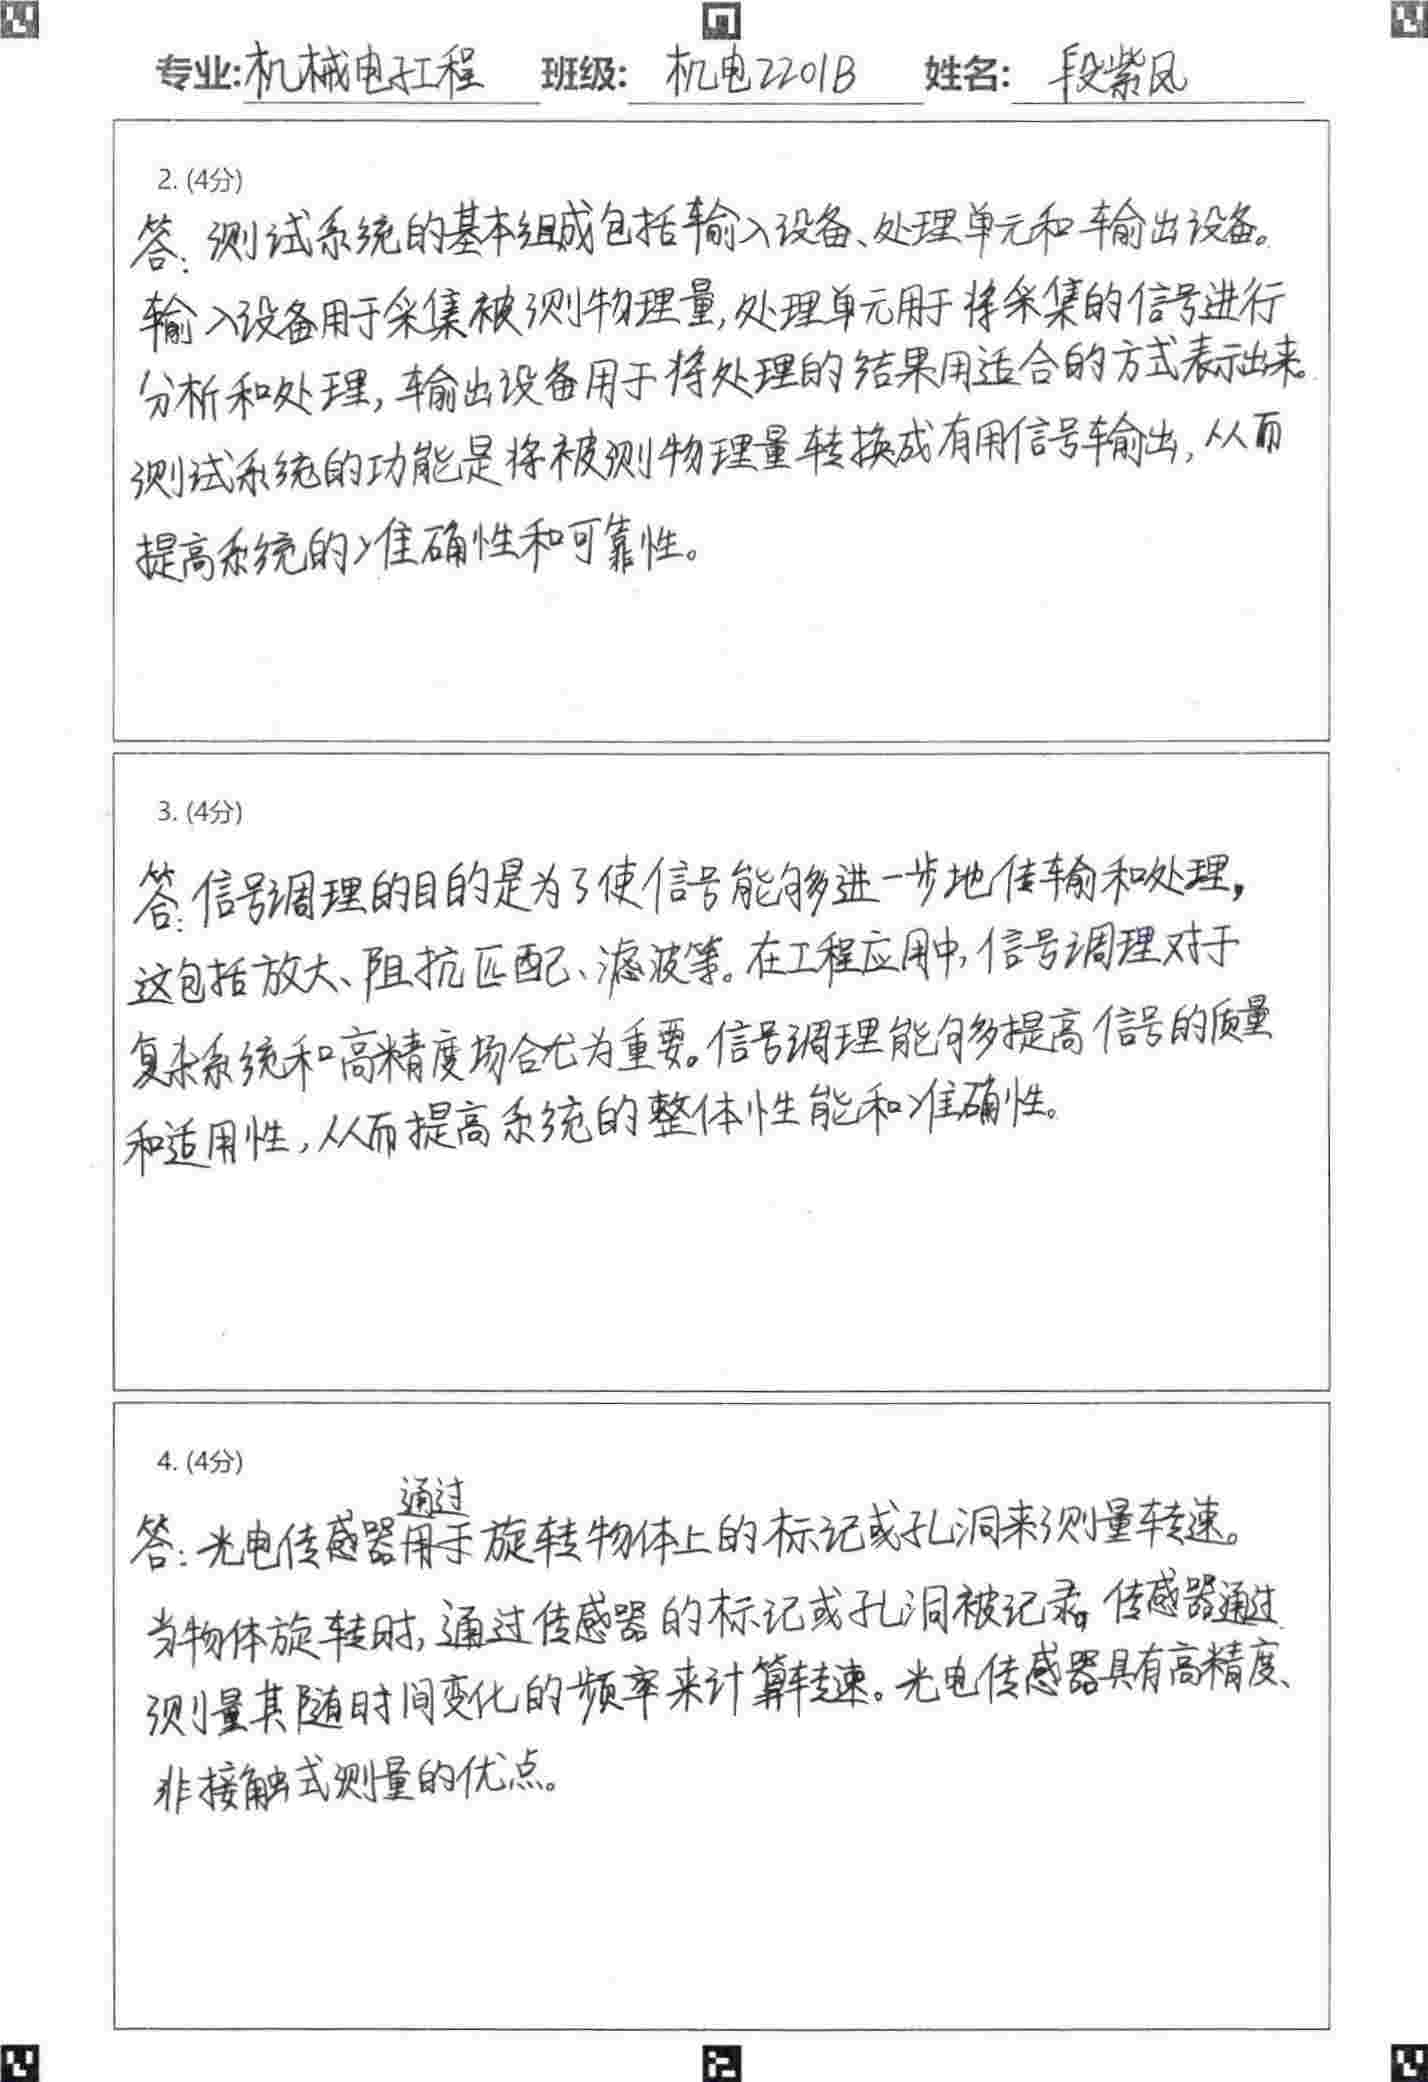 专业:机械电子工程 班级: 机电2201B 姓名: 段紫凤
2. (4分)
答: 测试系统的基本组成包括输入设备、处理单元和输出设备。
输入设备用于采集被测物理量,处理单元用于将采集的信号进行
分析和处理,输出设备用于将处理的结果用适合的方式表示出来。
测试系统的功能是将被测物理量转换成有用信号输出,从而
提高系统的准确性和可靠性。
3. (4分)
答:信号调理的目的是为了使信号能够进一步地传输和处理,
这包括放大、阻抗匹配、滤波等。在工程应用中,信号调理对于
复杂系统和高精度场合尤为重要。信号调理能够提高信号的质量
和适用性,从而提高系统的整体性能和准确性。
4. (4分)
通过
答:光电传感器用于旋转物体上的标记或孔洞来测量转速。
当物体旋转时,通过传感器的标记或孔洞被记录。传感器通过
测量其随时间变化的频率来计算转速。光电传感器具有高精度、
非接触式测量的优点。